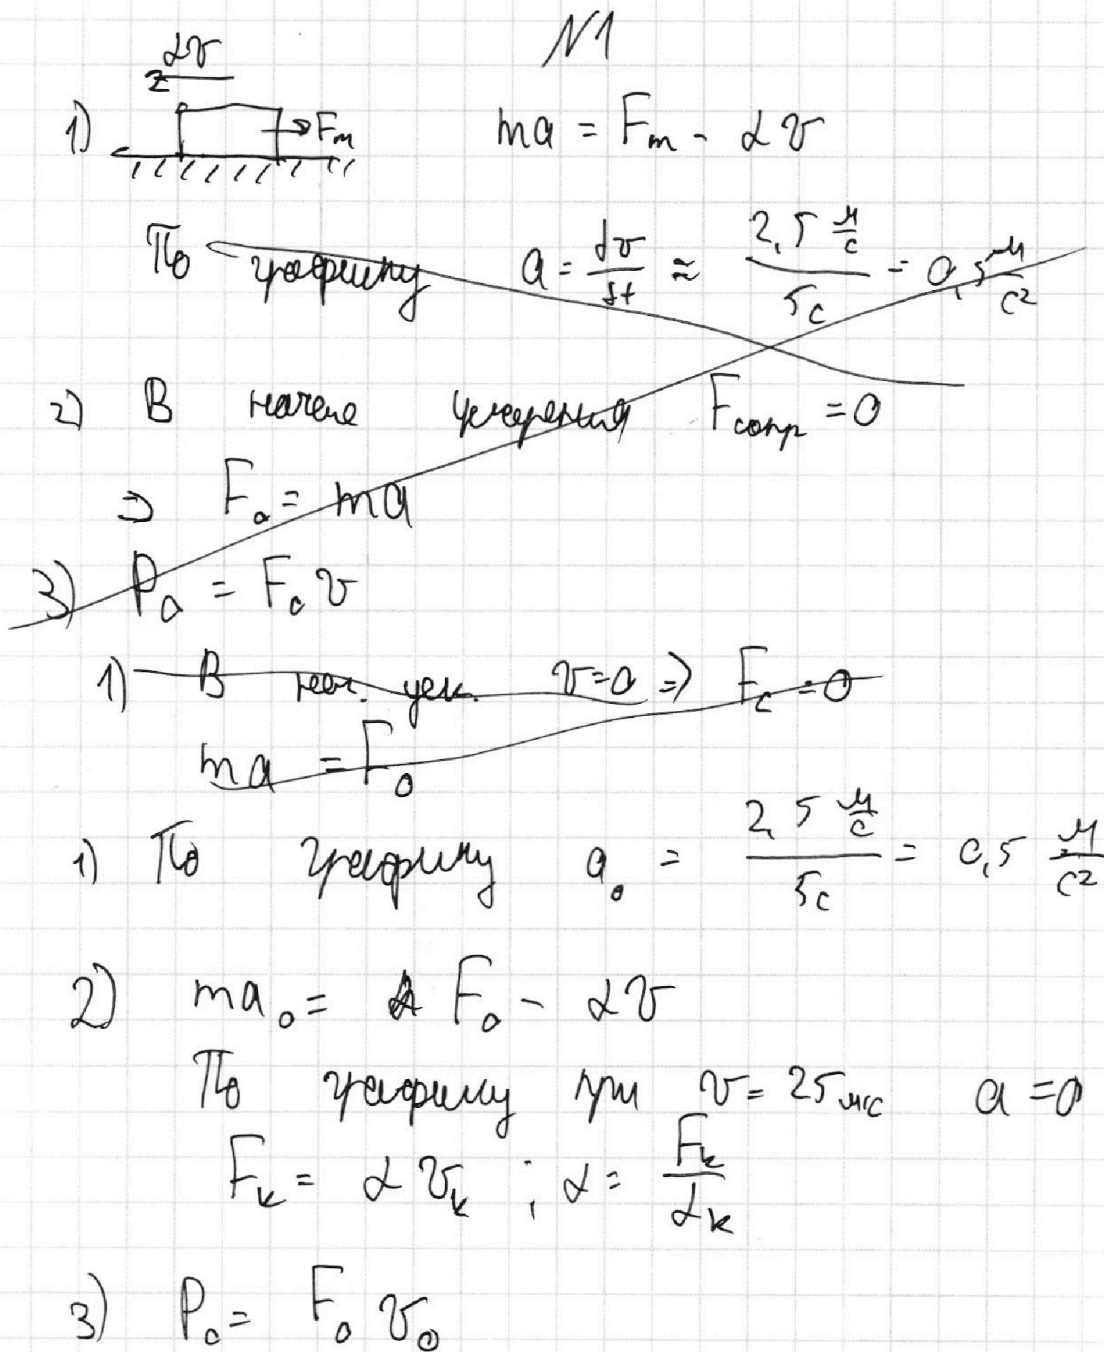 N1
αv
1) Fт ma = Fт - αv
По графику a = δv/δt ≈ 2,5 м/с / 5с = 0,5 м/с²
2) В начале ускорения Fсопр = 0
⇒ F₀ = ma
3) P₀ = F₀ v
1) В нач. уск. v=0 ⇒ Fс = 0
ma = F₀
1) По графику a₀ = 2,5 м/с / 5с = 0,5 м/с²
2) ma₀ = F₀ - αv
По графику при v = 25 м/с a = 0
Fк = αvк ; α = Fк/αк
3) P₀ = F₀ v₀